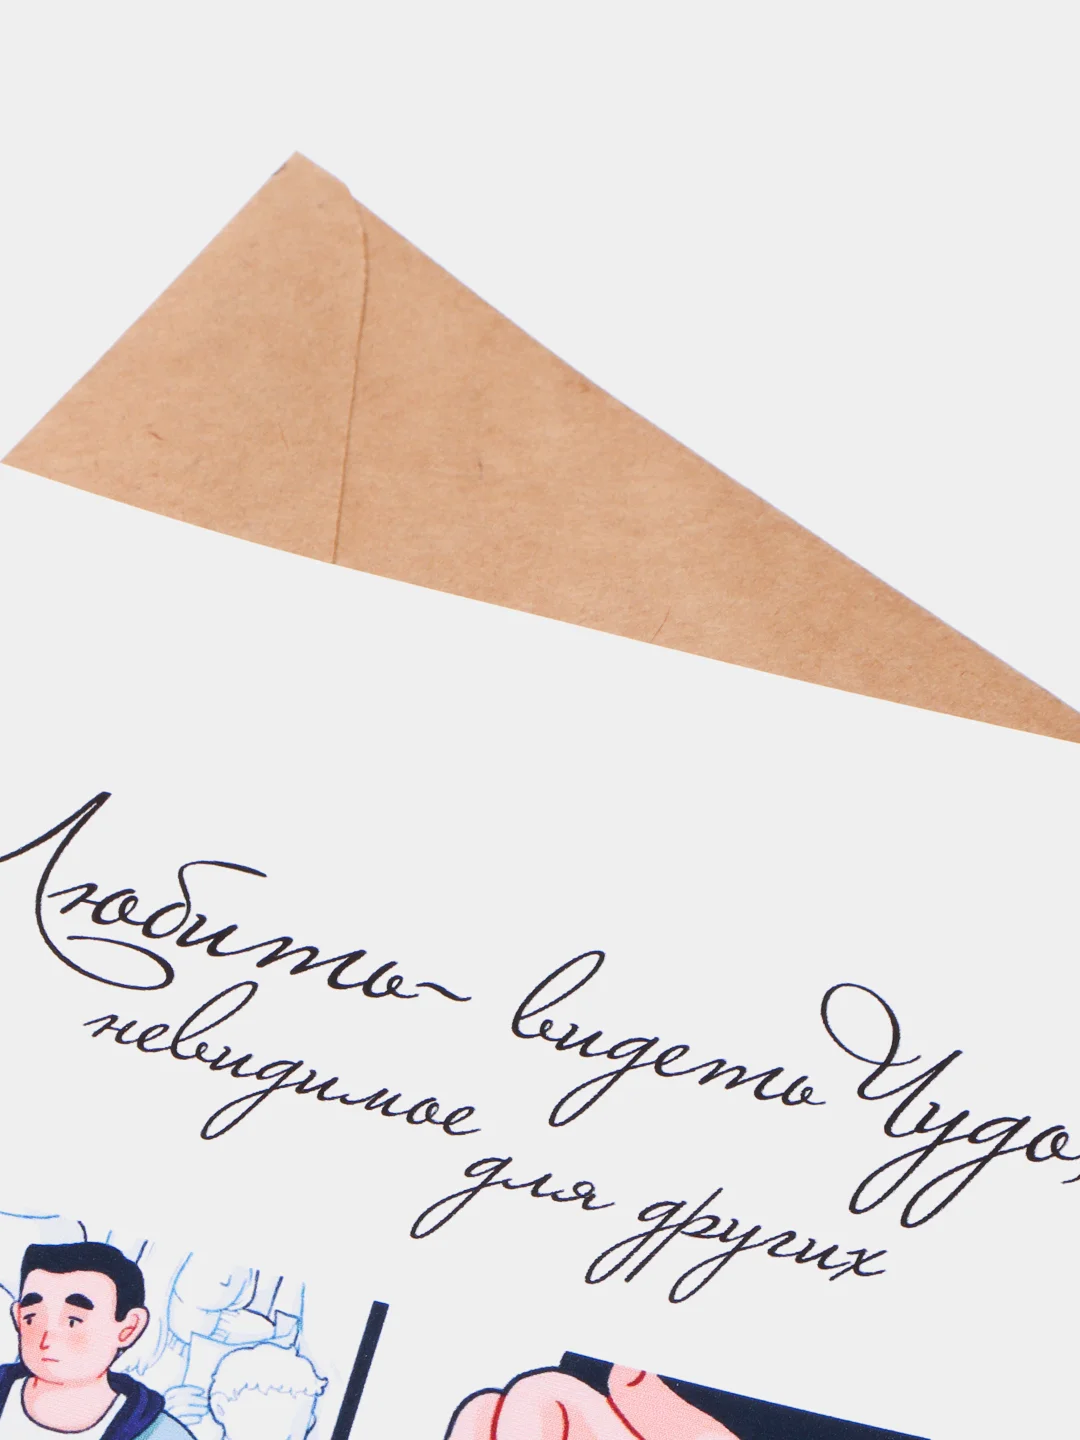 Любить- видеть Чудо,
невидимое
для других